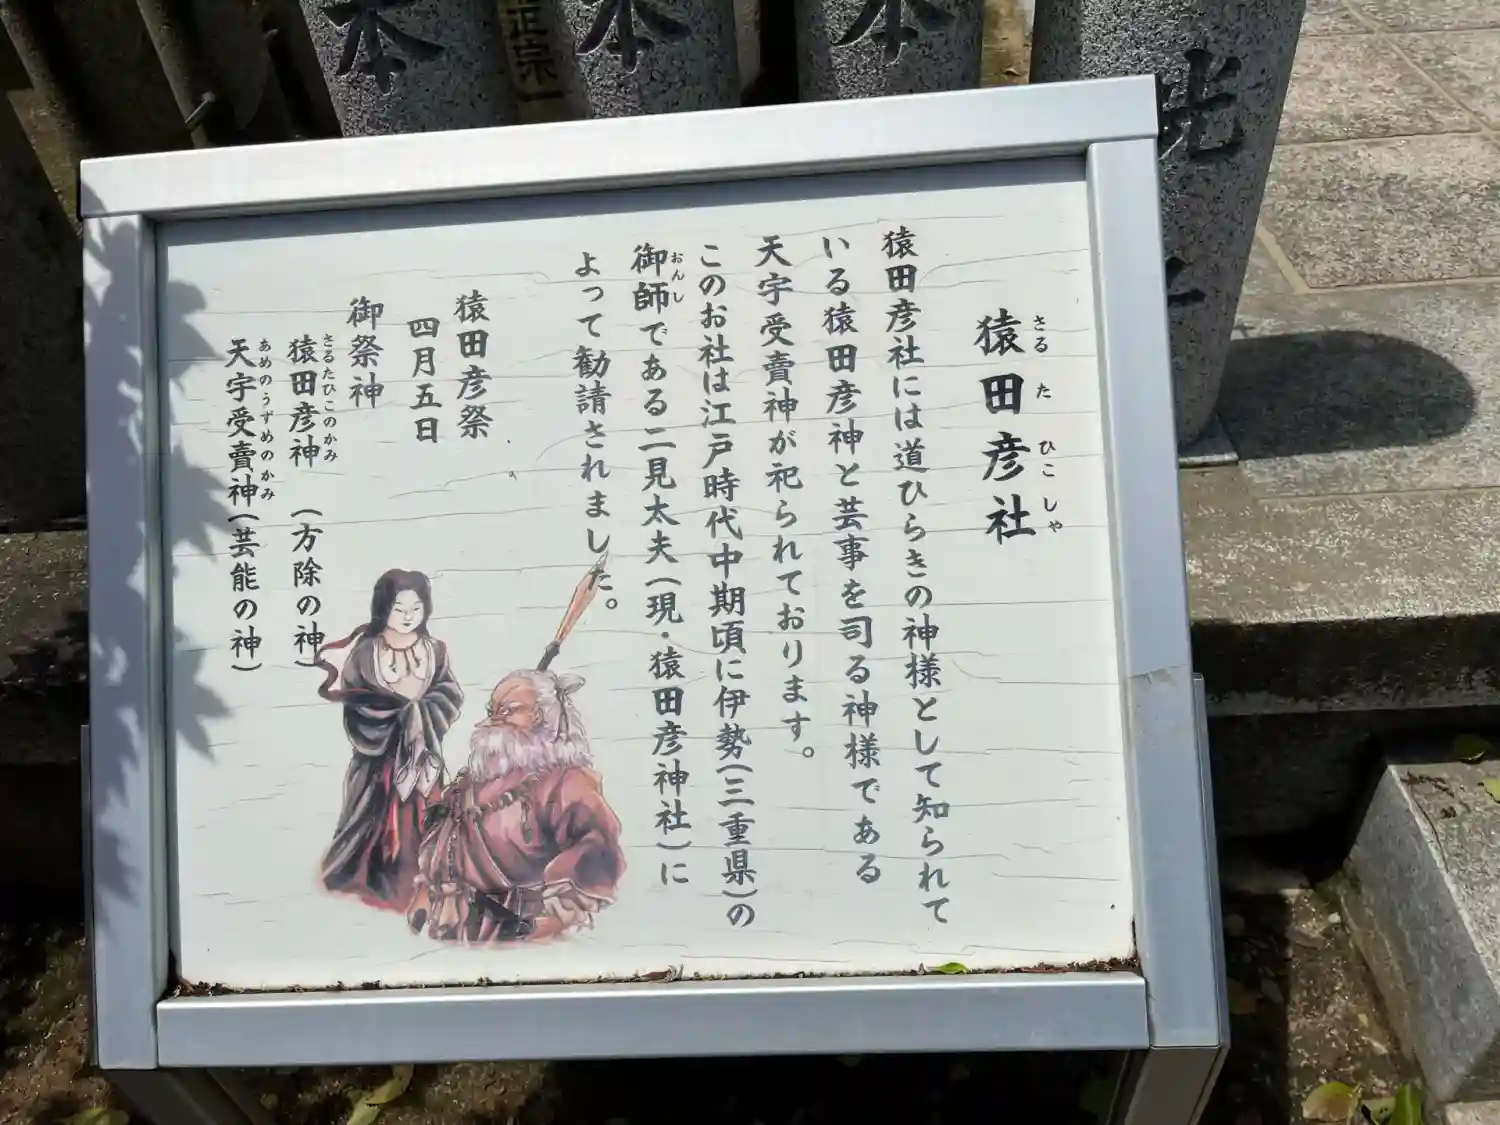 猿田彦社
さるたひこしゃ
猿田彦社には道ひらきの神様として知られて
いる猿田彦神と芸事を司る神様である
天宇受賣神が祀られております。
このお社は江戸時代中期頃に伊勢(三重県)の
御師である二見太夫(現・猿田彦神社)に
おんし
よって勧請されました。
猿田彦祭
四月五日
御祭神
猿田彦神 (方除の神)
さるたひこのかみ
天宇受賣神(芸能の神)
あめのうずめのかみ
本
正宗
本
本